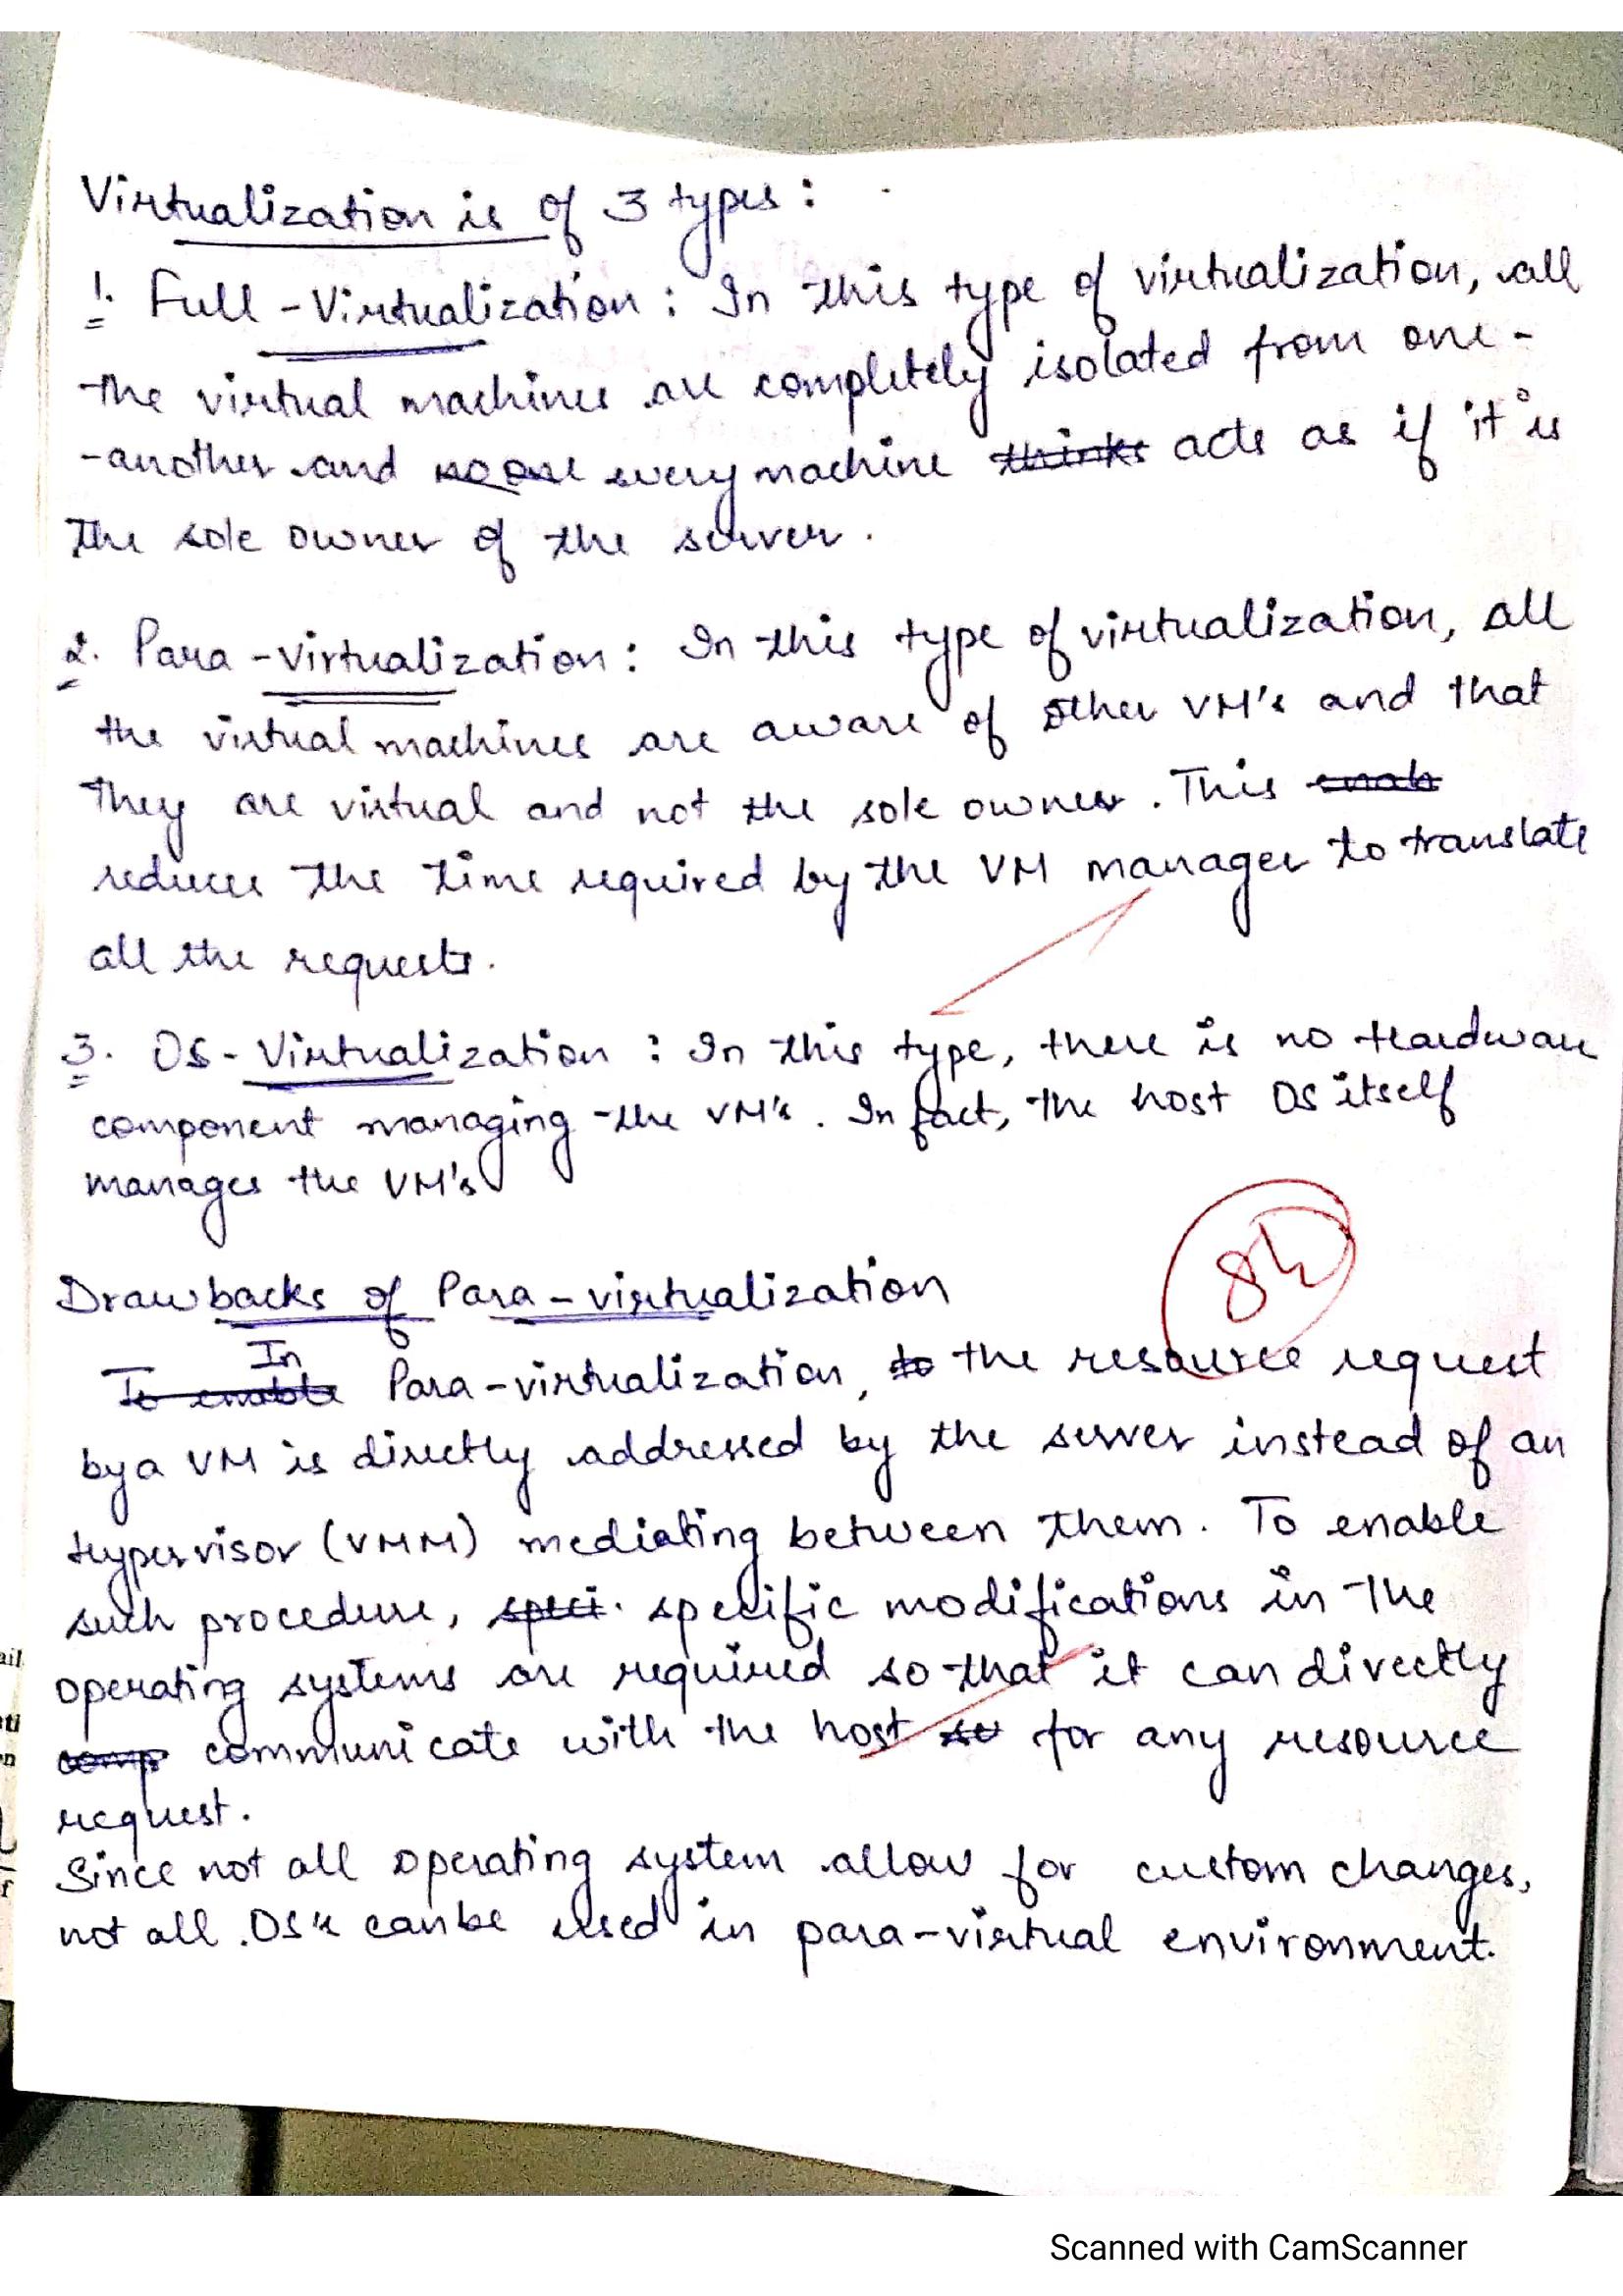 Virtualization is of 3 types :
1. Full - Virtualization : In this type of virtualization, all
the virtual machines are completely isolated from one-
-another and every machine thinks acts as if it is
the sole owner of the server.
2. Para - Virtualization : In this type of virtualization, all
the virtual machines are aware of other VM's and that
they are virtual and not the sole owner. This enab
reduces the time required by the VM manager to translate
all the requests.
3. OS - Virtualization : In this type, there is no Hardware
component managing the VM's. In fact, the host OS itself
manages the VM's
Drawbacks of Para - virtualization
In
To enable Para - virtualization, to the resource request
by a VM is directly addressed by the server instead of an
Hypervisor (VMM) mediating between them. To enable
such procedure, speci. specific modifications in the
operating systems are required so that it can directly
comp communicate with the host for any resource
request.
Since not all operating system allow for custom changes,
not all OS's can be used in para-virtual environment.
Scanned with CamScanner